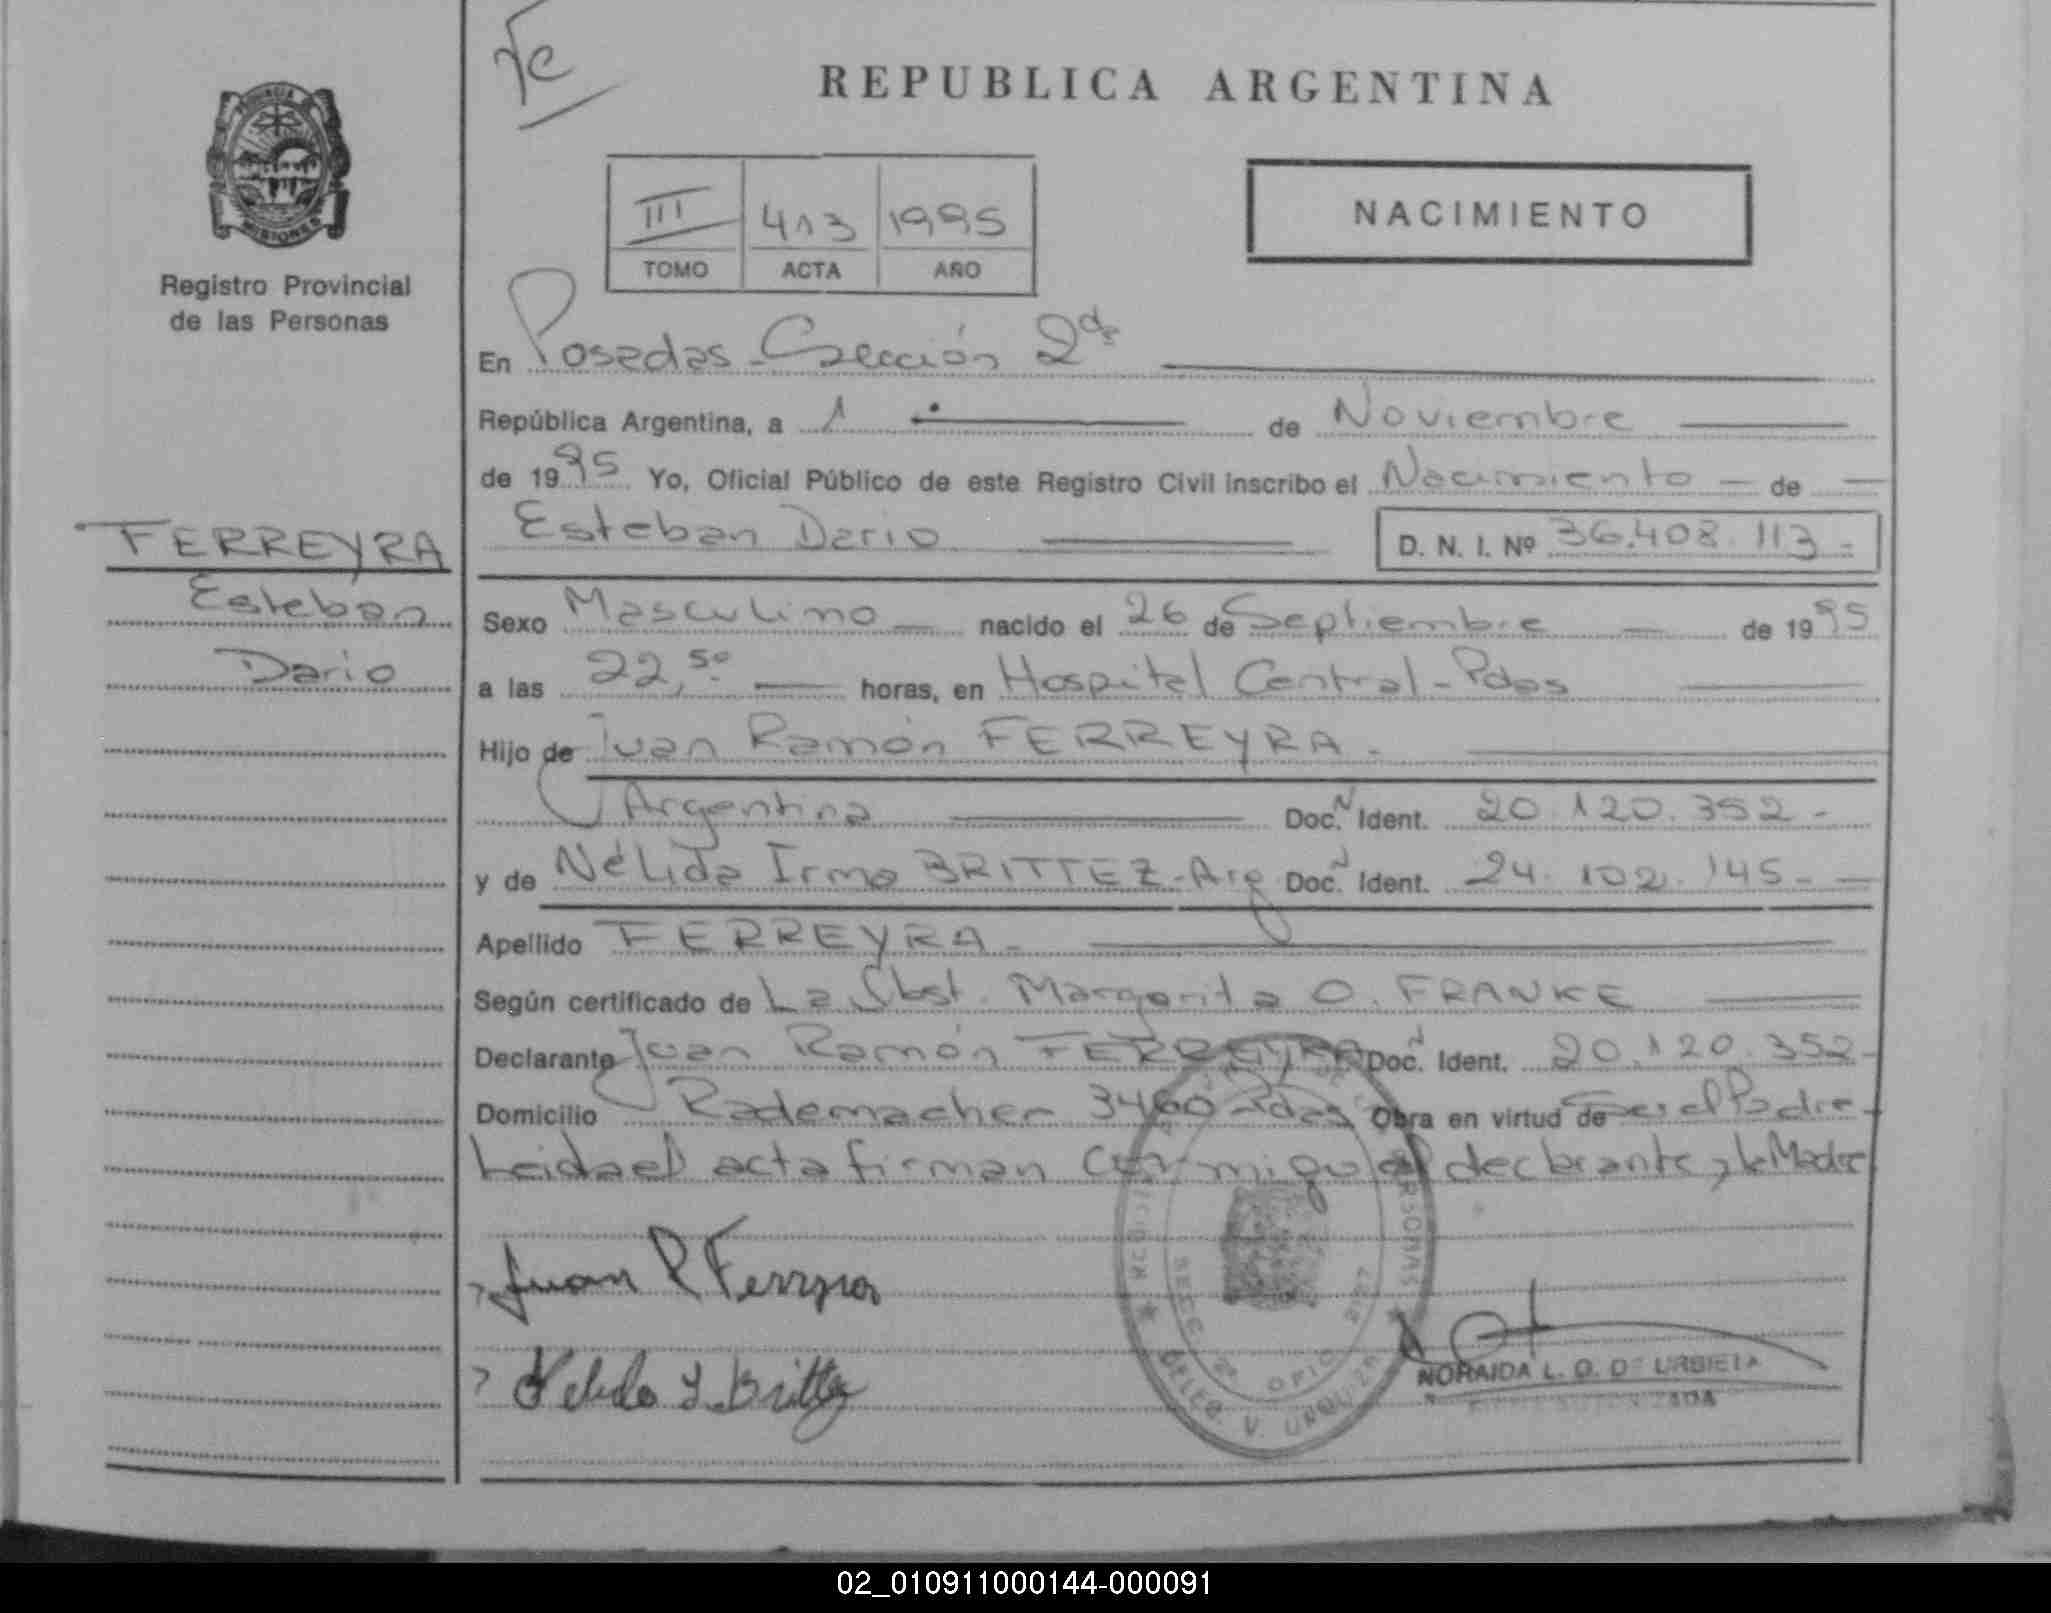 Fe
REPUBLICA ARGENTINA
PROVINCIA DE
MISIONES
Registro Provincial
de las Personas
III 413 1995
TOMO ACTA AÑO
NACIMIENTO
En Posadas - Sección 2da
República Argentina, a 1 de Noviembre
de 1995 Yo, Oficial Público de este Registro Civil inscribo el Nacimiento - de -
Esteban Dario D. N. I. Nº 36.408.113-
FERREYRA
Esteban
Dario
Sexo Masculino nacido el 26 de Septiembre - de 1995
a las 22,50 horas, en Hospital Central - Pdas
Hijo de Juan Ramón FERREYRA-
Argentina Doc. N Ident. 20.120.352-
y de Nélida Irma BRITTEZ - Arg Doc. N Ident. 24.102.145-
Apellido FERREYRA-
Según certificado de La Obst. Margarita O. FRANKE
Declarante Juan Ramón FERREYRA Doc. N Ident. 20.120.352-
Domicilio Rademacher 3460 - Pdas Obra en virtud de Ser el Padre-
Leida el acta firman conmigo el declarante y la Madre
Juan R Ferreyra
Nelida I. Brittez
PERSONAS
SECC. 2ª
DELEG. V. URQUIZA
NORAIDA L. O. DE URBIETA
FIRMA AUTORIZADA
02_010911000144-000091